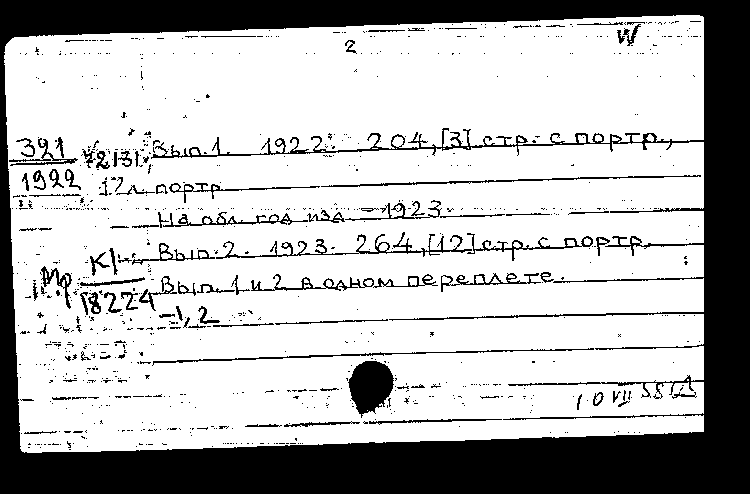 2
W
321 Вып. 1. 1922. 204, [3] стр. с портр.,
1922 12л. портр
На обл. год изд — 1923.
К1 Вып. 2. 1923. 264, [12] стр. с портр.
Мр 18224 Вып. 1 и 2 в одном переплете.
-1, 2
10 VII 58